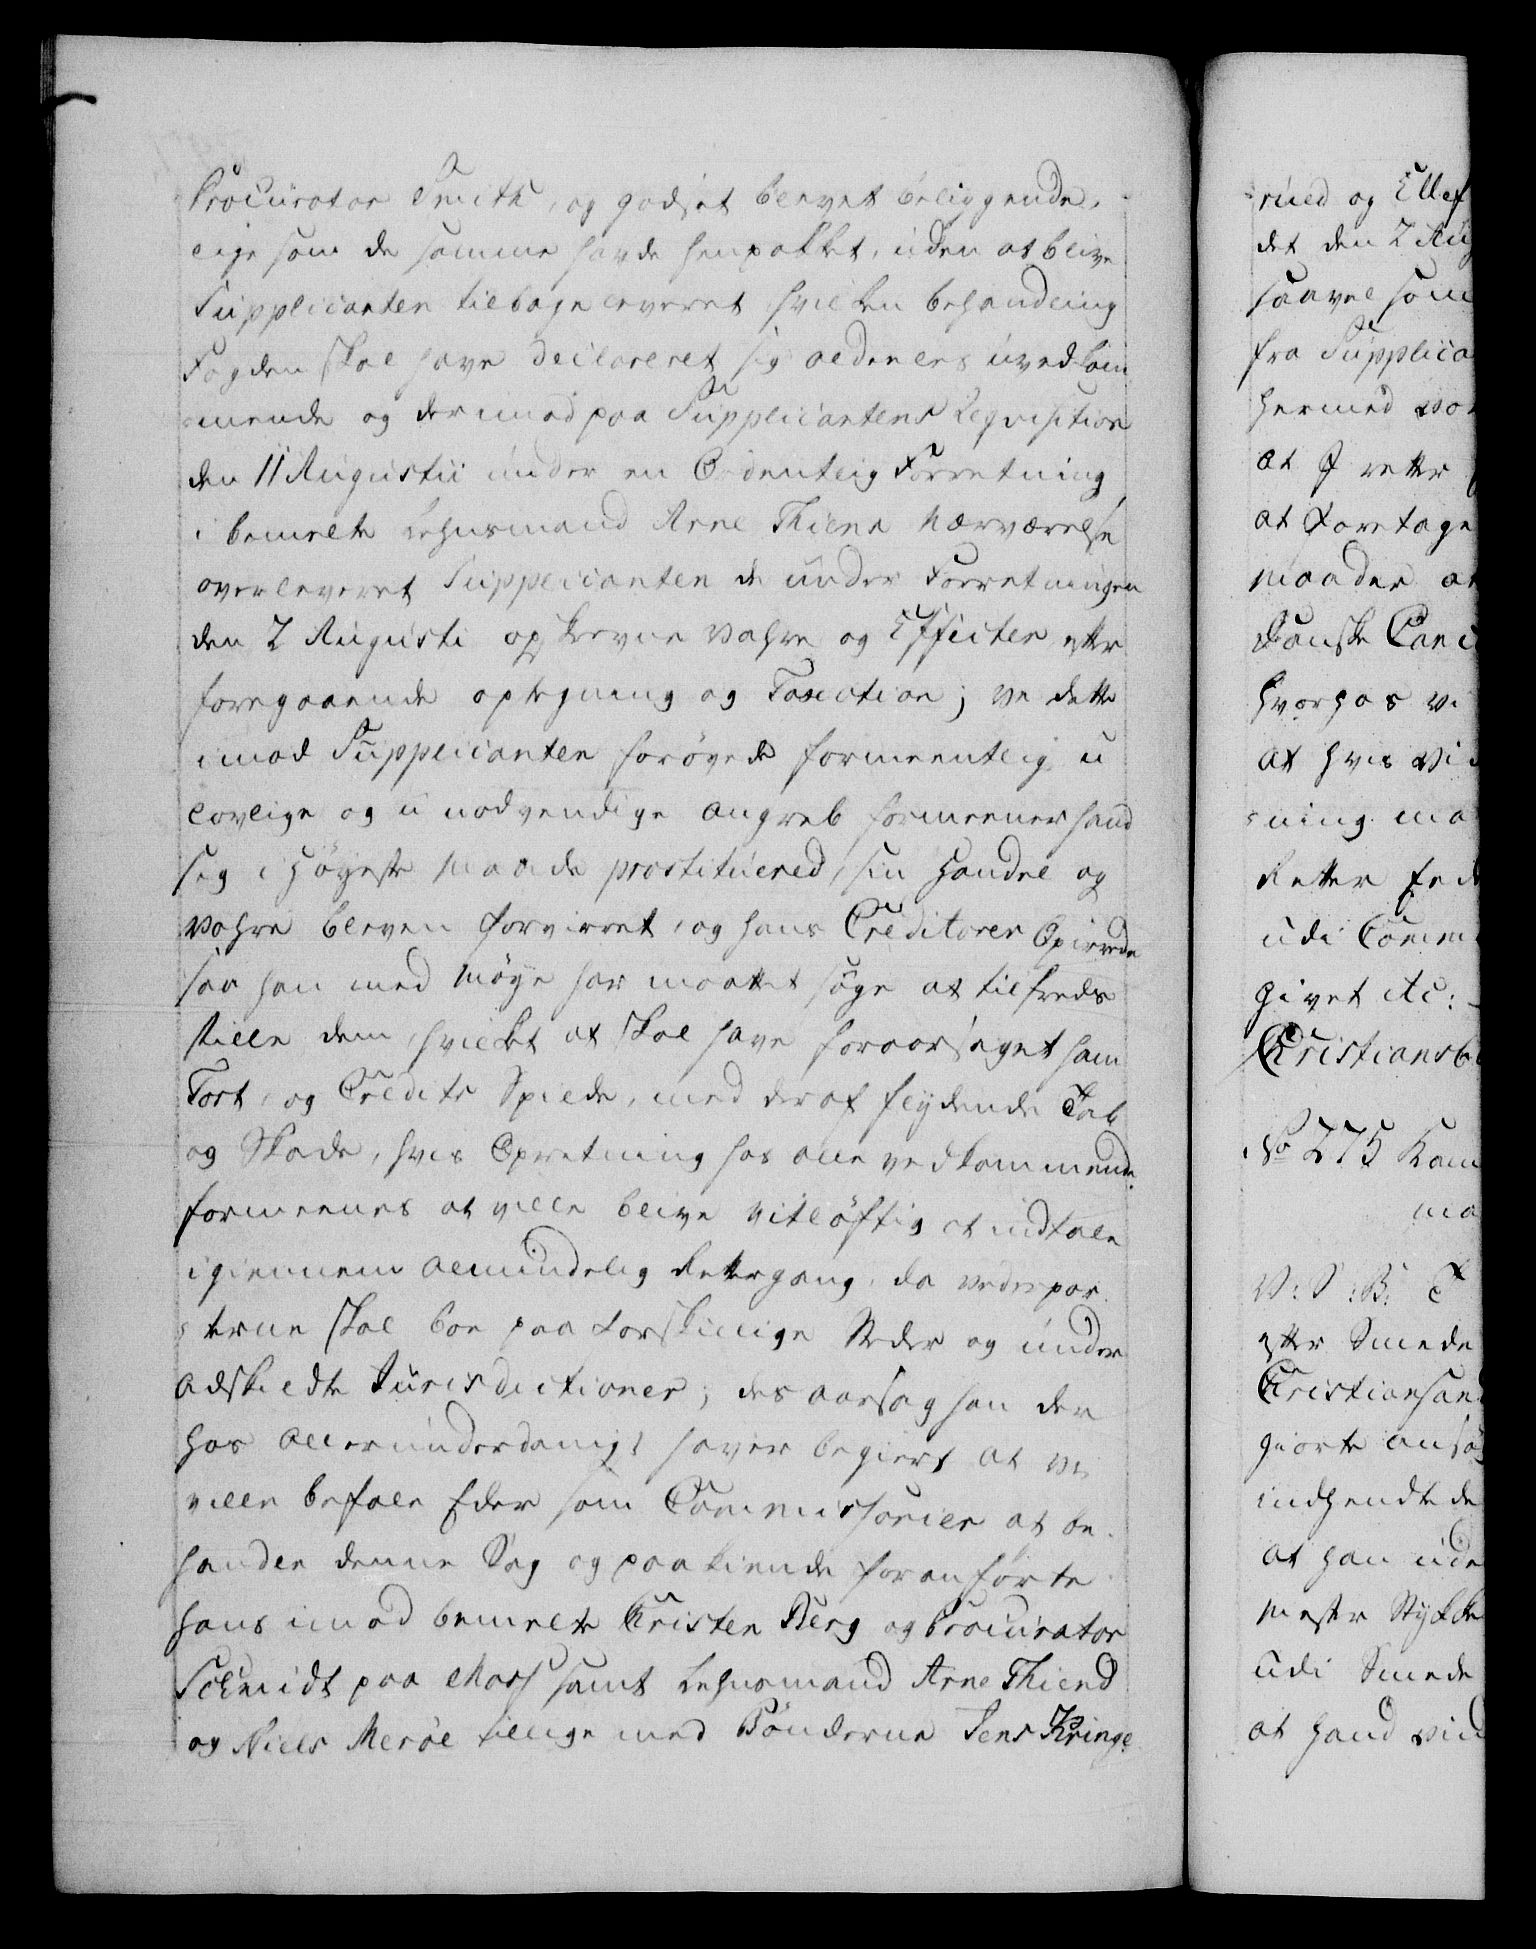 Procurator Smith, og godset blevet beliggende,
lige som de samme havde henpakket, uden at blive
Supplicanten tilbage leveret hvilken behandling
Fogden skal have declareret sig aldeeles uvedkom
mende og derimod paa Supplicantens Reqvisition
den 11 Augustii under en Ordentlig Forretning
i bemelte Lehnsmand Arne Thiens Nærværelse
overleveret Supplicanten de under Forretningen
den 2 Augusti opskrevne Vahre og Effecter efter
foregaaende optegning og Taxation; ve dette
imod Supplicanten forøvede formeentlig u
lovlige og u nødvendige angreb formeener hand
sig i høyeste Maade prostituered, sin Handel og
Vahre bleven forvirret, og hans Creditorer Opirrede
saa han med Møye har maattet søge at tilfreds
stille dem, hvilket at skal have foraarsaget ham
Tort, og Credits Spilde, med deraf flydende Tab
og Skade, hvis Opretning hos alle vedkommende
formeenes at ville blive vitløftig at indtale
igiennem almindelig Rettergang, da vederpar
terne skal boe paa forskiellige Steder og under
adskildte Jurisdictioner; des aarsag han der
hos allerunderdanigst haver begiert at vi
ville befale Eder som Commissarier at be
handle denne Sag og paakiende foranførte
hans imod bemelte Christen Berg og Procurator
Schmidt paa Moss samt Lehnsmand Arne Thiend
og Niels Merøe tillige med Bønderne Jens Kringe
rued og Ellef
det den 2 Aug
saavel som
fra Supplica
hermed vor
at I retter
at foretage
maader at
Danske Canc
hvorhos vi
at hvis Vi
ning ma
Retter Ed
udi Comm
givet etc:
Christiansb
No 275 Kam
ma
V: S: B: T
efter Smede
Christiansand
giorte ansøg
indhendtede
at han ude
mester Stykke
udi Smede
at hand vid